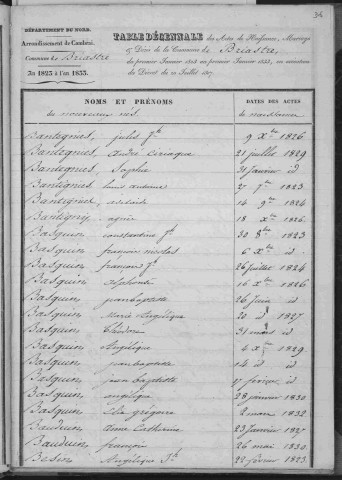 34
DÉPARTEMENT DU NORD.
Arrondissement de Cambrai.
Commune de Briastre.
AN 1823 à l'an 1833.
TABLE DÉCENNALE des Actes de Naissance, Mariage
et Décès de la Commune de Briastre,
du premier Janvier 1823 au premier Janvier 1833, en exécution
du Décret du 20 Juillet 1807.
NOMS ET PRÉNOMS DATES DES ACTES
de nouveaux nés. de naissance
Bantegnies, jules fs 9 Xbre 1826
Bantegnies, andré Ciriaque 21 juillet 1829
Bantegnies, Sophie 31 janvier id
Bantegnies, louis antoine 27 7bre 1823
Bantegnies, adelaide 14 9bre 1824
Bantigny, 18 Xbre 1826
Basquin, constantin fs 30 8bre 1823
Basquin, françois nicolas 6 Xbre id
Basquin, françois fs 26 juillet 1824
Basquin, alphonse 16 Xbre 1826
Basquin, jean baptiste 26 juin id
Basquin, Marie Angélique 20 id 1827
Basquin, 31 mars id
Basquin, Angélique 4 Xbre 1829
Basquin, jean baptiste 14 id id
Basquin, jean baptiste 17 fevrier id
Basquin, angélique 28 janvier 1830
Basquin, Elie grégoire 2 mars 1832
Bauduin, aimé Catherine 23 janvier 1827
Bauduin, françois 26 mai 1830
Besin, Angélique Jh 22 fevrier 1823